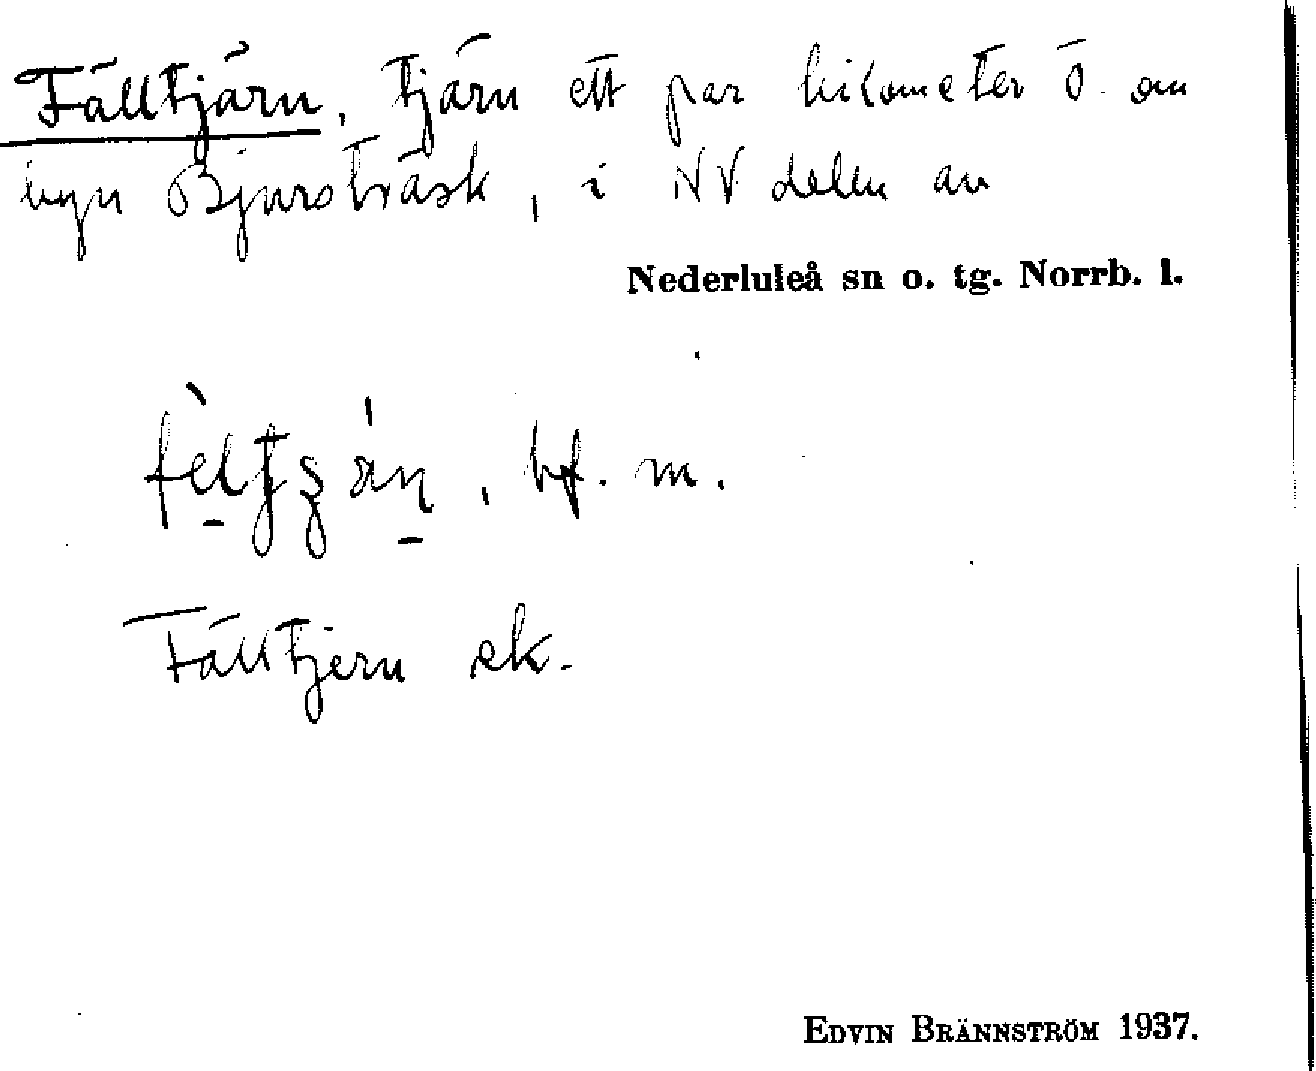 Fälltjärn, tjärn ett par kilometer Ö. om
byn Bjursträsk, i NV delen av
Nederluleå sn o. tg. Norrb. l.
, bf. m.
Fälltjern ek.
EDVIN BRÄNNSTRÖM 1937.